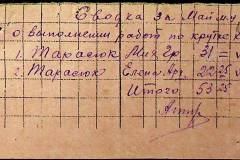 Сводка за Май м-ц
о выполнении работ по крутке
1. Тарасюк Мих Гр. 31 =
2. Тарасюк Елена Арт. 22=25
Итого 53=25